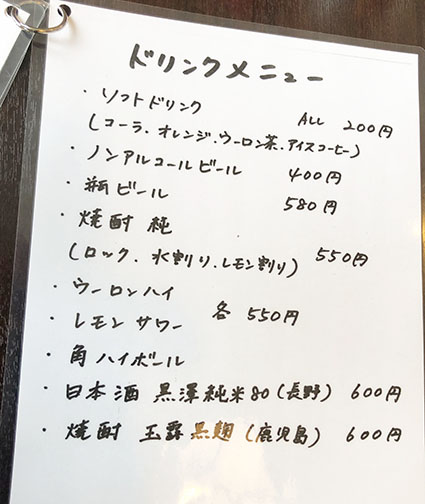 ドリンクメニュー
・ソフトドリンク ALL 200円
(コーラ．オレンジ．ウーロン茶．アイスコーヒー)
・ノンアルコールビール 400円
・瓶ビール 580円
・焼酎 純
(ロック．水割り．レモン割り) 550円
・ウーロンハイ
・レモンサワー 各550円
・角ハイボール
・日本酒 黒澤純米80(長野) 600円
・焼酎 玉露黒麹(鹿児島) 600円